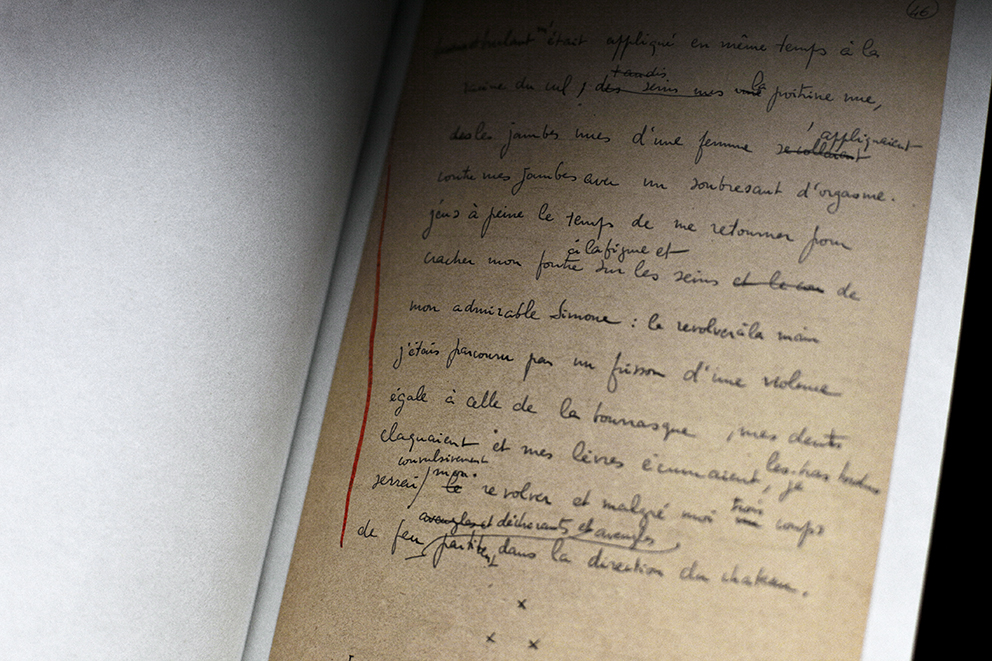 46
m'était appliqué en même temps à la
tandis
du cul, des seins nus la poitrine nue,
s'appliquaient
les jambes nues d'une femme se collaient
contre mes jambes avec un soubresaut d'orgasme.
j'eus à peine le temps de me retourner pour
à la figure et
cracher mon foutre sur les seins et le cou de
mon admirable Simone : le revolver à la main
j'étais parcouru par un frisson d'une violence
égale à celle de la bourrasque, mes dents
claquaient et mes lèvres écumaient, les bras tordus je
convulsivement
mon
trois
serrai le revolver et malgré moi coups
aveugles et déchirants et aveugles
de feu partirent dans la direction du chateau.
x
x x